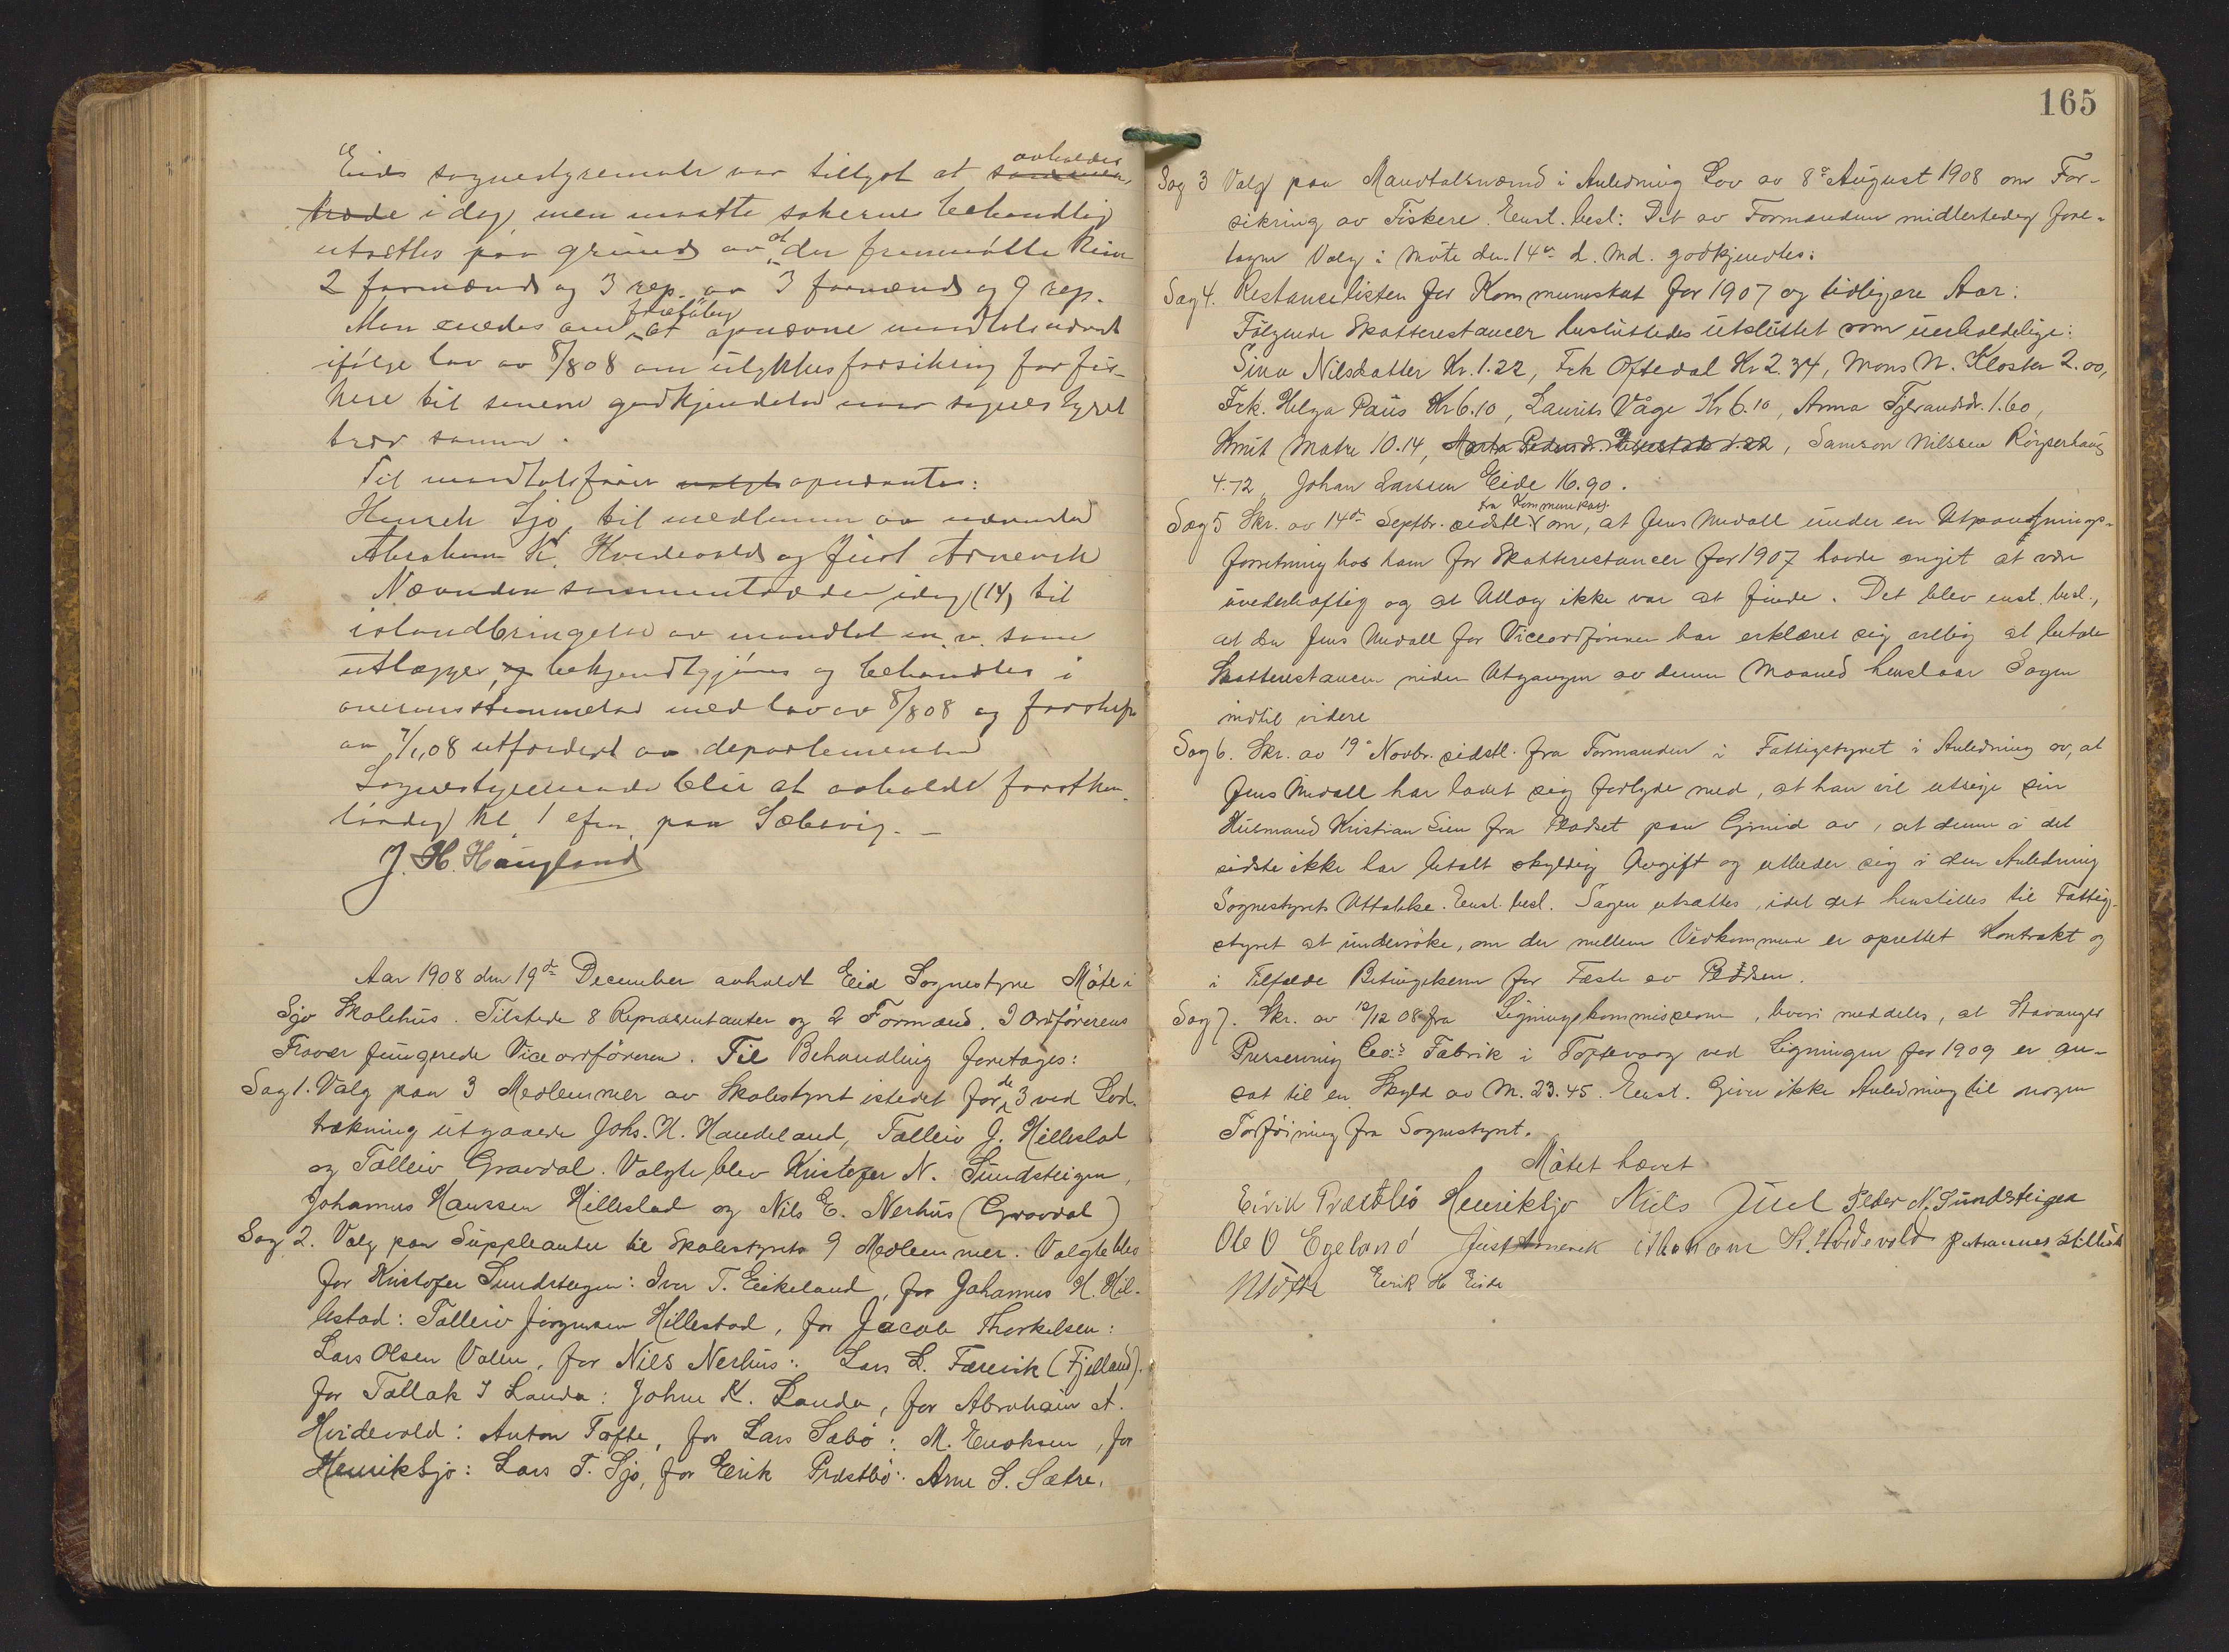 Eids sognestyremøte var tillyst at avholdes
i dag, men maatte sakernes behandling
utsættes paa grund av at der fremmøtte kun
2 formænd og 3 rep. av 3 formænd og 9 rep.
Man enedes om foreløbig at opnævne mandtalsnævnd
ifølge lov av 8/8 08 om ulykkesforsikring for fis-
kere til senere godkjendelse naar sognestyret
trær sammen.
Til mandtalsfører opnævntes:
Henrik Sjo, til medlemmer av nævnden
Abraham K. Hvidevold og Just Arnevik
Nævnden sammentræder idag (14) til
istandbringelse av mandtal m. v. som
utlægges, bekjendtgjøres og behandles i
overensstemmelse med lov av 8/8 08 og forskr.
av 7/11 08 utfærdiget av departementet
Sognestyremøde blir at avholde førstkom.
lørdag kl. 1 efm. paa Sæbøvig. –
J. H. Haugland
Aar 1908 den 19de December avholdt Eid Sognestyre Møte i
Sjo Skolehus. Tilstede 8 Repræsentanter og 2 Formænd. I Ordførerens
Fravær fungerede Viceordføreren. Til Behandling foretages:
Sag 1. Valg paa 3 Medlemmer av Skolestyret istedet for de 3 ved Lod-
trækning utgaaede Johs. H. Handeland, Tolleiv J. Hillestad
og Tolleiv Gravdal. Valgte blev Kristofer N. Sundsteigen,
Johannes Hanssen Hillestad og Nils E. Nerhus (Gravdal)
Sag 2. Valg paa Suppleanter til Skolestyrets 9 Medlemmer. Valgte blev
for Kristofer Sundsteigen: Iver T. Eikeland, for Johannes H. Hil-
lestad: Tolleiv Jørgensen Hillestad, for Jacob Thorkelsen:
Lars Olsen Valen, for Nils Nerhus: Lars L. Færevik (Fjelland).
for Tallak T Landa: Johne K. Landa, for Abraham A.
Hvidevold: Anton Tofte, for Lars Sæbø: M. Enoksen, for
Henrik Sjo: Lars T. Sjo, for Eirik Præstbø: Arne S. Sætre.
165
Sag 3 Valg paa Mandtalsnævnd i Anledning Lov av 8de August 1908 om For-
sikring av Fiskere. Enst. besl: Det av Formanden midlertidig fore-
tagne Valg i Møte den 14de d. Md. godkjendtes.
Sag 4. Restancelisten for Kommuneskat for 1907 og tidligere Aar:
Følgende Skatterestancer besluttedes utslettet som uerholdelige:
Sina Nilsdatter Kr. 1.22, Frk Oftedal Kr 2.34, Mons N. Kloster 2.00,
Frk. Helga Paus Kr 6.10, Laurits Våge Kr 6.10, Anna Tjerandsdr. 1.60,
Knut Matre 10.14, , Samson Nilssen Røyserhaug
4.72, Johan Larssen Eide 16.90.
Sag 5 Skr. av 14de Septbr. sidstl fra Kommunekass. om, at Jens Undall under en Utpantnings-
forretning hos ham for Skatterestancer for 1907 havde angit at være
uvederhæftig og at Utlæg ikke var at finde. Det blev enst. besl.,
at da Jens Undall for Viceordføreren har erklæret sig villig at betale
Skatterestancen inden Utgangen av denne Maaned henstaar Sagen
indtil videre
Sag 6. Skr. av 19de Novbr. sidstl. fra Formanden i Fattigstyret i Anledning av, at
Jens Undall har ladet sig forlyde med, at han vil utsige sin
Husmand Kristian Lien fra Pladset paa Grund av, at denne i det
sidste ikke har betalt skyldig Avgift og utbeder sig i den Anledning
Sognestyrets Uttalelse. Enst. besl. Sagen utsættes, idet det henstilles til Fattig-
styret at undersøke, om der mellem Vedkommende er oprettet Kontrakt og
i Tilfælde Betingelserne for Fæste av Pladsen.
Sag 7. Skr. av 12/12 08 fra Ligningskommissionen, hvori meddeles, at Stavanger
Preserving Co.s Fabrik i Toftevaag ved Ligningen for 1909 er an-
sat til en Skyld av M. 23.45. Enst. Giver ikke Anledning til nogen
Forføining fra Sognestyret.
Møtet hævet
Eirik Præstbø Henrik Sjo Niels Juel Peder N. Sundsteigen
Ole O Egeland Just Arnevik Abraham K. Hvidevold Johannes Hillestad
N Tofte Eerik H. Eide